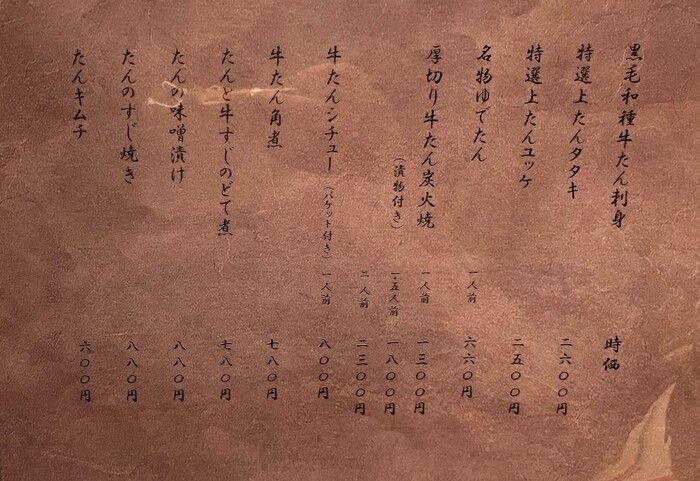 黒毛和種牛たん刺身 時価
特選上たんタタキ 二六〇〇円
特選上たんユッケ 二五〇〇円
名物ゆでたん 一人前 六六〇円
厚切り牛たん炭火焼 一人前 一三〇〇円
(漬物付き) 一・五人前 一八〇〇円
二人前 二三〇〇円
牛たんシチュー(バケット付き) 一人前 八〇〇円
牛たん角煮 七八〇円
たんと牛すじのどて煮 七八〇円
たんの味噌漬け 八八〇円
たんのすじ焼き 八八〇円
たんキムチ 六〇〇円